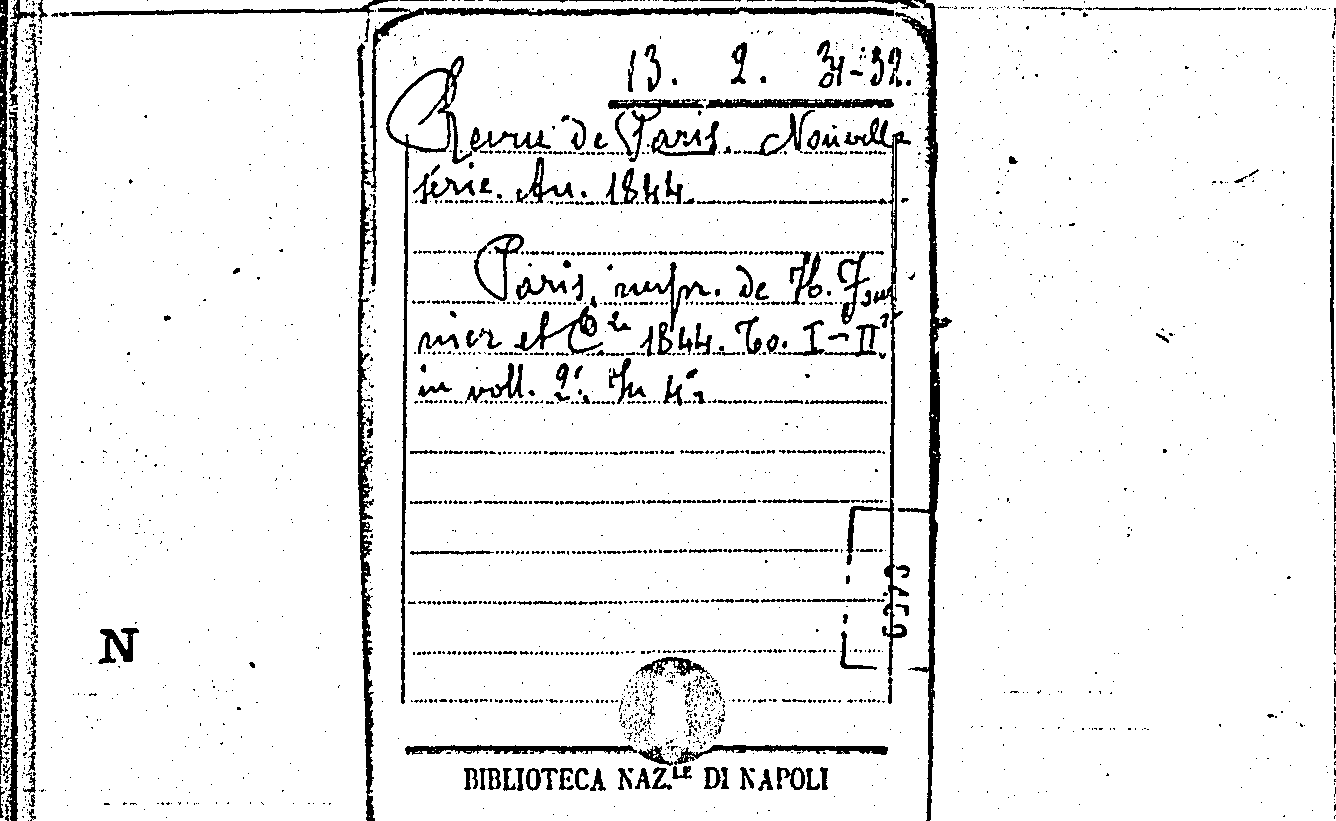 13. 2. 31-32.
Revue de Paris. Nouvelle
série. An. 1844.
Paris, impr. de H. Four
nier et C.ie 1844. To. I-II
in voll. 2. In 4.°
N
BIBLIOTECA NAZ.LE DI NAPOLI